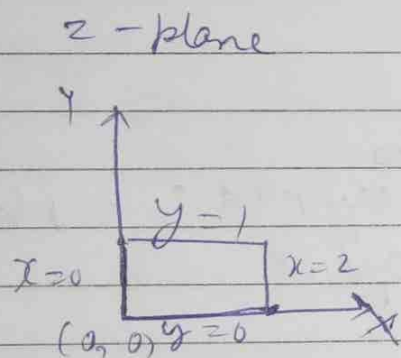 z - plane
Y
y = 1
x = 0
x = 2
(0, 0) y = 0
X